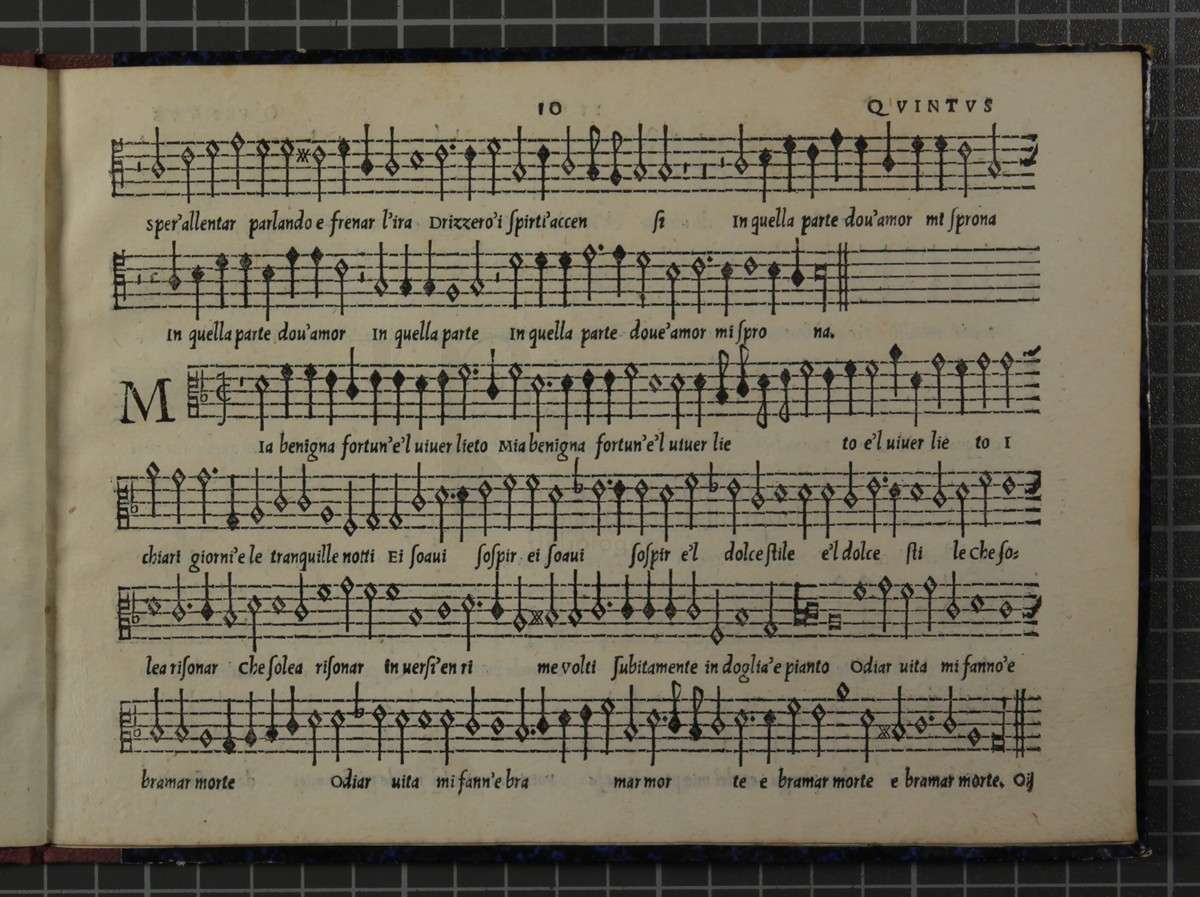 10
QVINTVS
sper'allentar parlando e frenar l'ira Drizzero'i ſpirti'accen ſi In quella parte dou'amor mi ſprona
In quella parte dou'amor In quella parte In quella parte doue'amor mi ſpro na.
M
Ia benigna fortun'e'l uiuer lieto Mia benigna fortun'e'l uiuer lie to e'l uiuer lie to I
chiari giorni'e le tranquille notti Ei ſoaui ſoſpir ei ſoaui ſoſpir e'l dolce ſtile e'l dolce ſti le che ſo=
lea riſonar Che ſolea riſonar in uerſi'en ri me volti ſubitamente in doglia'e pianto Odiar uita mi fanno'e
bramar morte Odiar uita mi fann'e bra mar mor te e bramar morte e bramar morte. Oij